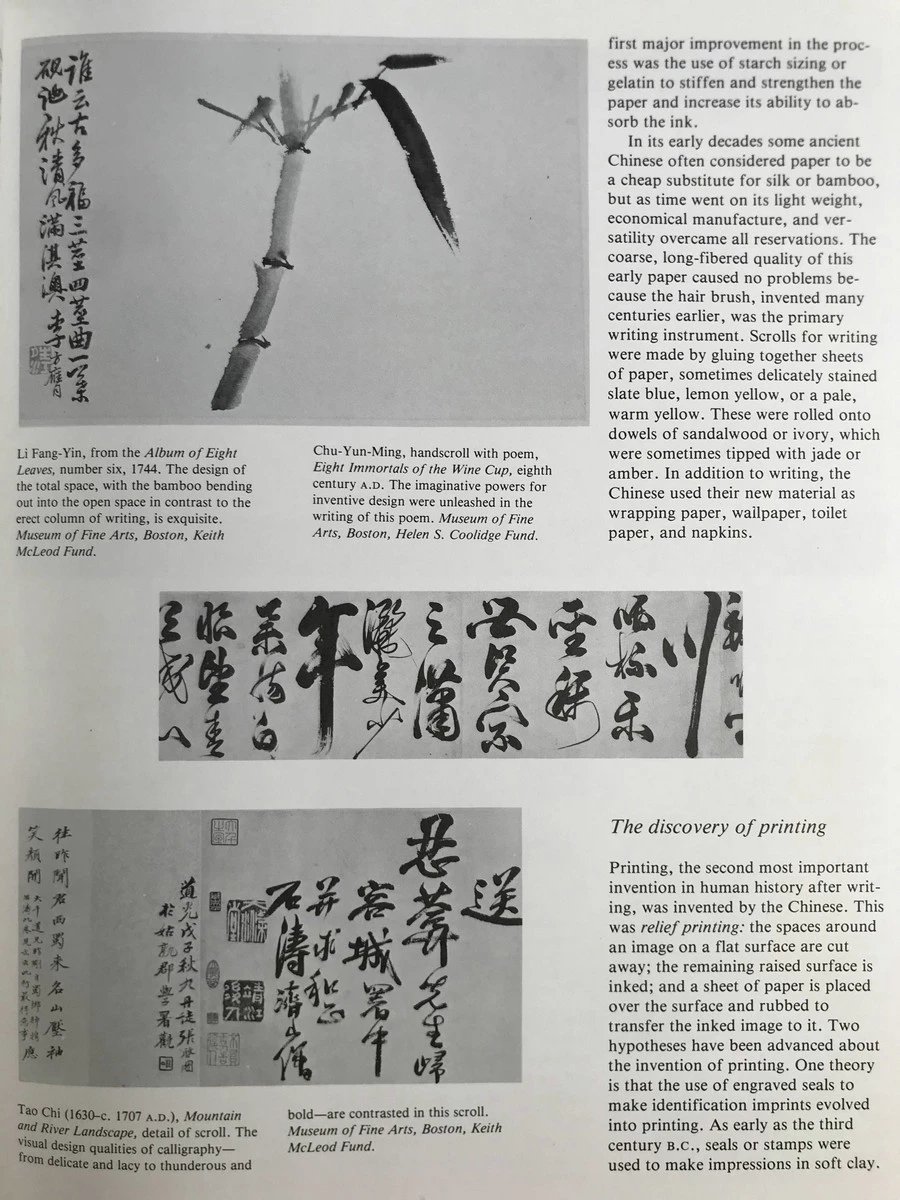 誰云古多福三莖四莖曲一葉
硯池秋清風滿淇澳李方膺
first major improvement in the proc-
ess was the use of starch sizing or
gelatin to stiffen and strengthen the
paper and increase its ability to ab-
sorb the ink.
In its early decades some ancient
Chinese often considered paper to be
a cheap substitute for silk or bamboo,
but as time went on its light weight,
economical manufacture, and ver-
satility overcame all reservations. The
coarse, long-fibered quality of this
early paper caused no problems be-
cause the hair brush, invented many
centuries earlier, was the primary
writing instrument. Scrolls for writing
were made by gluing together sheets
of paper, sometimes delicately stained
slate blue, lemon yellow, or a pale,
warm yellow. These were rolled onto
dowels of sandalwood or ivory, which
were sometimes tipped with jade or
amber. In addition to writing, the
Chinese used their new material as
wrapping paper, wallpaper, toilet
paper, and napkins.
Li Fang-Yin, from the Album of Eight
Leaves, number six, 1744. The design of
the total space, with the bamboo bending
out into the open space in contrast to the
erect column of writing, is exquisite.
Museum of Fine Arts, Boston, Keith
McLeod Fund.
Chu-Yun-Ming, handscroll with poem,
Eight Immortals of the Wine Cup, eighth
century A.D. The imaginative powers for
inventive design were unleashed in the
writing of this poem. Museum of Fine
Arts, Boston, Helen S. Coolidge Fund.
川
杯樂
聖稱
宗
之瀟
灑美少
年
白
望青
送
先生歸
容城署中
并求和正
石濤濟山僧
道光戊子秋九丹徒張
於姑孰郡學署觀
昨聞君西蜀來名山壓袖
笑顏開
The discovery of printing
Printing, the second most important
invention in human history after writ-
ing, was invented by the Chinese. This
was relief printing: the spaces around
an image on a flat surface are cut
away; the remaining raised surface is
inked; and a sheet of paper is placed
over the surface and rubbed to
transfer the inked image to it. Two
hypotheses have been advanced about
the invention of printing. One theory
is that the use of engraved seals to
make identification imprints evolved
into printing. As early as the third
century B.C., seals or stamps were
used to make impressions in soft clay.
Tao Chi (1630–c. 1707 A.D.), Mountain
and River Landscape, detail of scroll. The
visual design qualities of calligraphy—
from delicate and lacy to thunderous and
bold—are contrasted in this scroll.
Museum of Fine Arts, Boston, Keith
McLeod Fund.